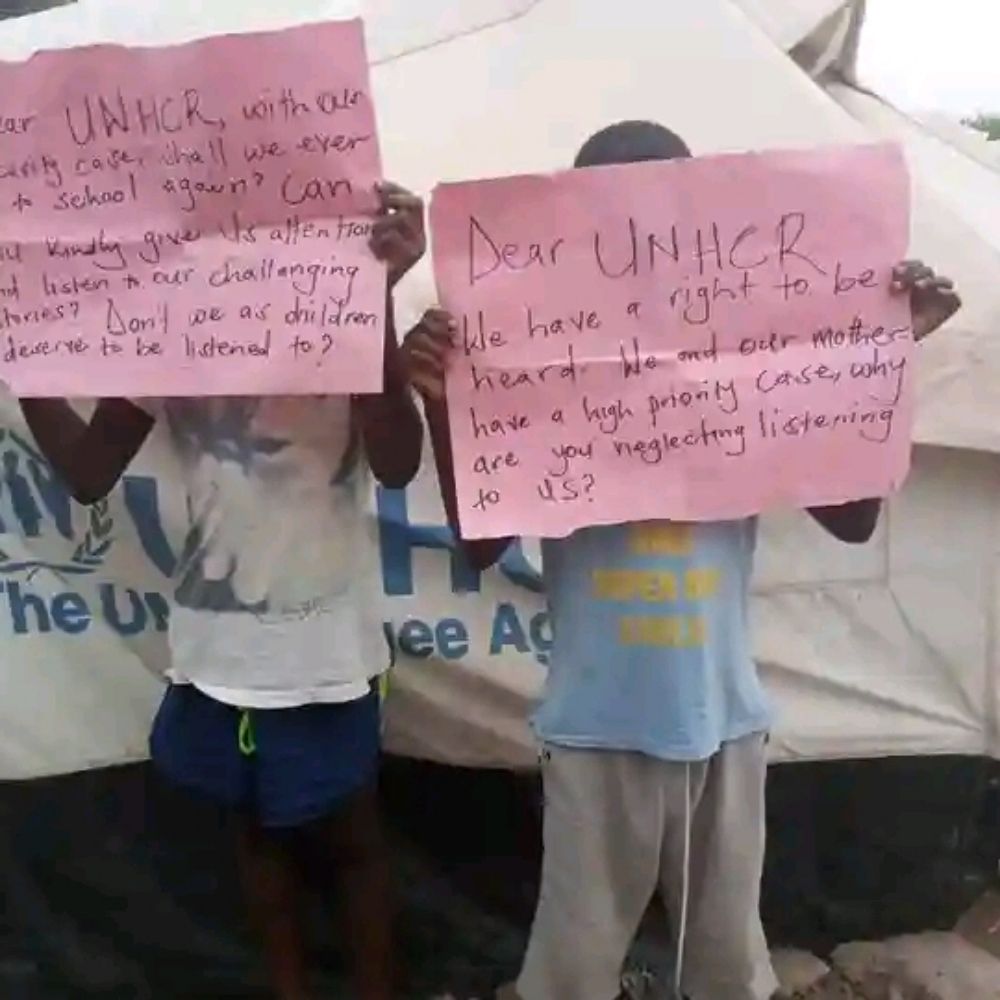 ear UNHCR, with our
curity case, shall we ever
to school again? Can
ou kindly give us attention
nd listen to our challanging
tories? Don't we as children
deserve to be listened to?
Dear UNHCR
We have a right to be
heard. We and our mother
have a high priority case, why
are you neglecting listening
to us?
U HC
The UN gee Ag